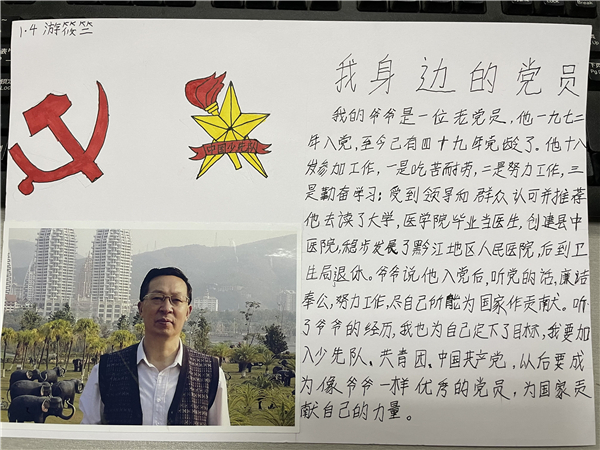 1.4 游筱竺
中国少先队
我身边的党员
我的爷爷是一位老党员,他一九七二
年入党,至今已有四十九年党龄了。他十八
岁参加工作,一是吃苦耐劳,二是努力工作,三
是勤奋学习;受到领导和群众认可并推荐
他去读了大学,医学院毕业当医生,创建县中
医院,稳步发展了黔江地区人民医院,后到卫
生局退休。爷爷说他入党后,听党的话,廉洁
奉公,努力工作,尽自己所能为国家作贡献。听
了爷爷的经历,我也为自己定下了目标,我要加
入少先队、共青团、中国共产党,从后要成
为像爷爷一样优秀的党员,为国家贡
献自己的力量。